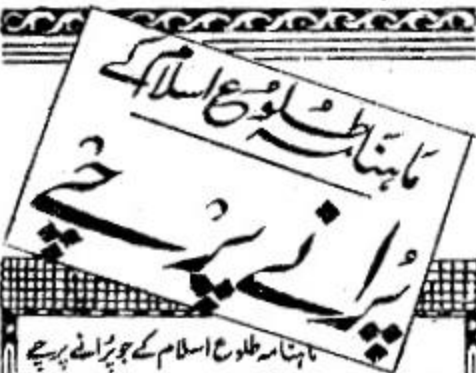 ماہنامہ طلوعِ اسلام کے
پُرانے پرچے
ماہنامہ طلوع اسلام کے جو پُرانے پرچے